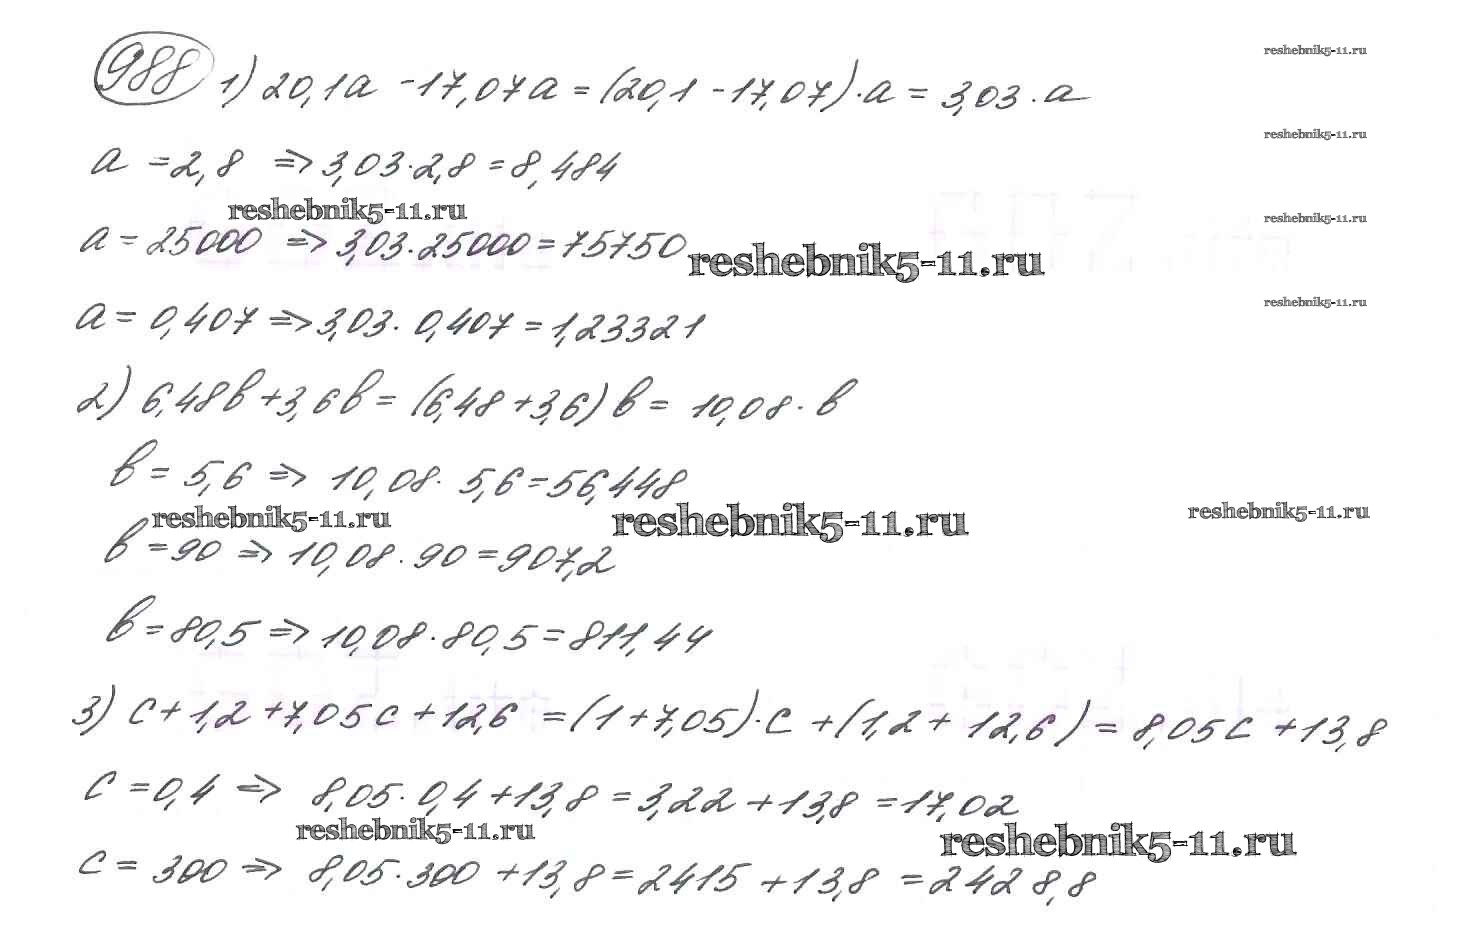 988 1) 20,1a - 17,07a = (20,1 - 17,07) · a = 3,03 · a
reshebnik5-11.ru
reshebnik5-11.ru
a = 2,8 => 3,03 · 2,8 = 8,484
reshebnik5-11.ru
reshebnik5-11.ru
a = 25000 => 3,03 · 25000 = 75750
reshebnik5-11.ru
reshebnik5-11.ru
a = 0,407 => 3,03 · 0,407 = 1,23321
2) 6,48b + 3,6b = (6,48 + 3,6) b = 10,08 · b
b = 5,6 => 10,08 · 5,6 = 56,448
reshebnik5-11.ru
reshebnik5-11.ru
reshebnik5-11.ru
b = 90 => 10,08 · 90 = 907,2
b = 80,5 => 10,08 · 80,5 = 811,44
3) c + 1,2 + 7,05c + 12,6 = (1 + 7,05) · c + (1,2 + 12,6) = 8,05c + 13,8
c = 0,4 => 8,05 · 0,4 + 13,8 = 3,22 + 13,8 = 17,02
reshebnik5-11.ru
reshebnik5-11.ru
c = 300 => 8,05 · 300 + 13,8 = 2415 + 13,8 = 2428,8